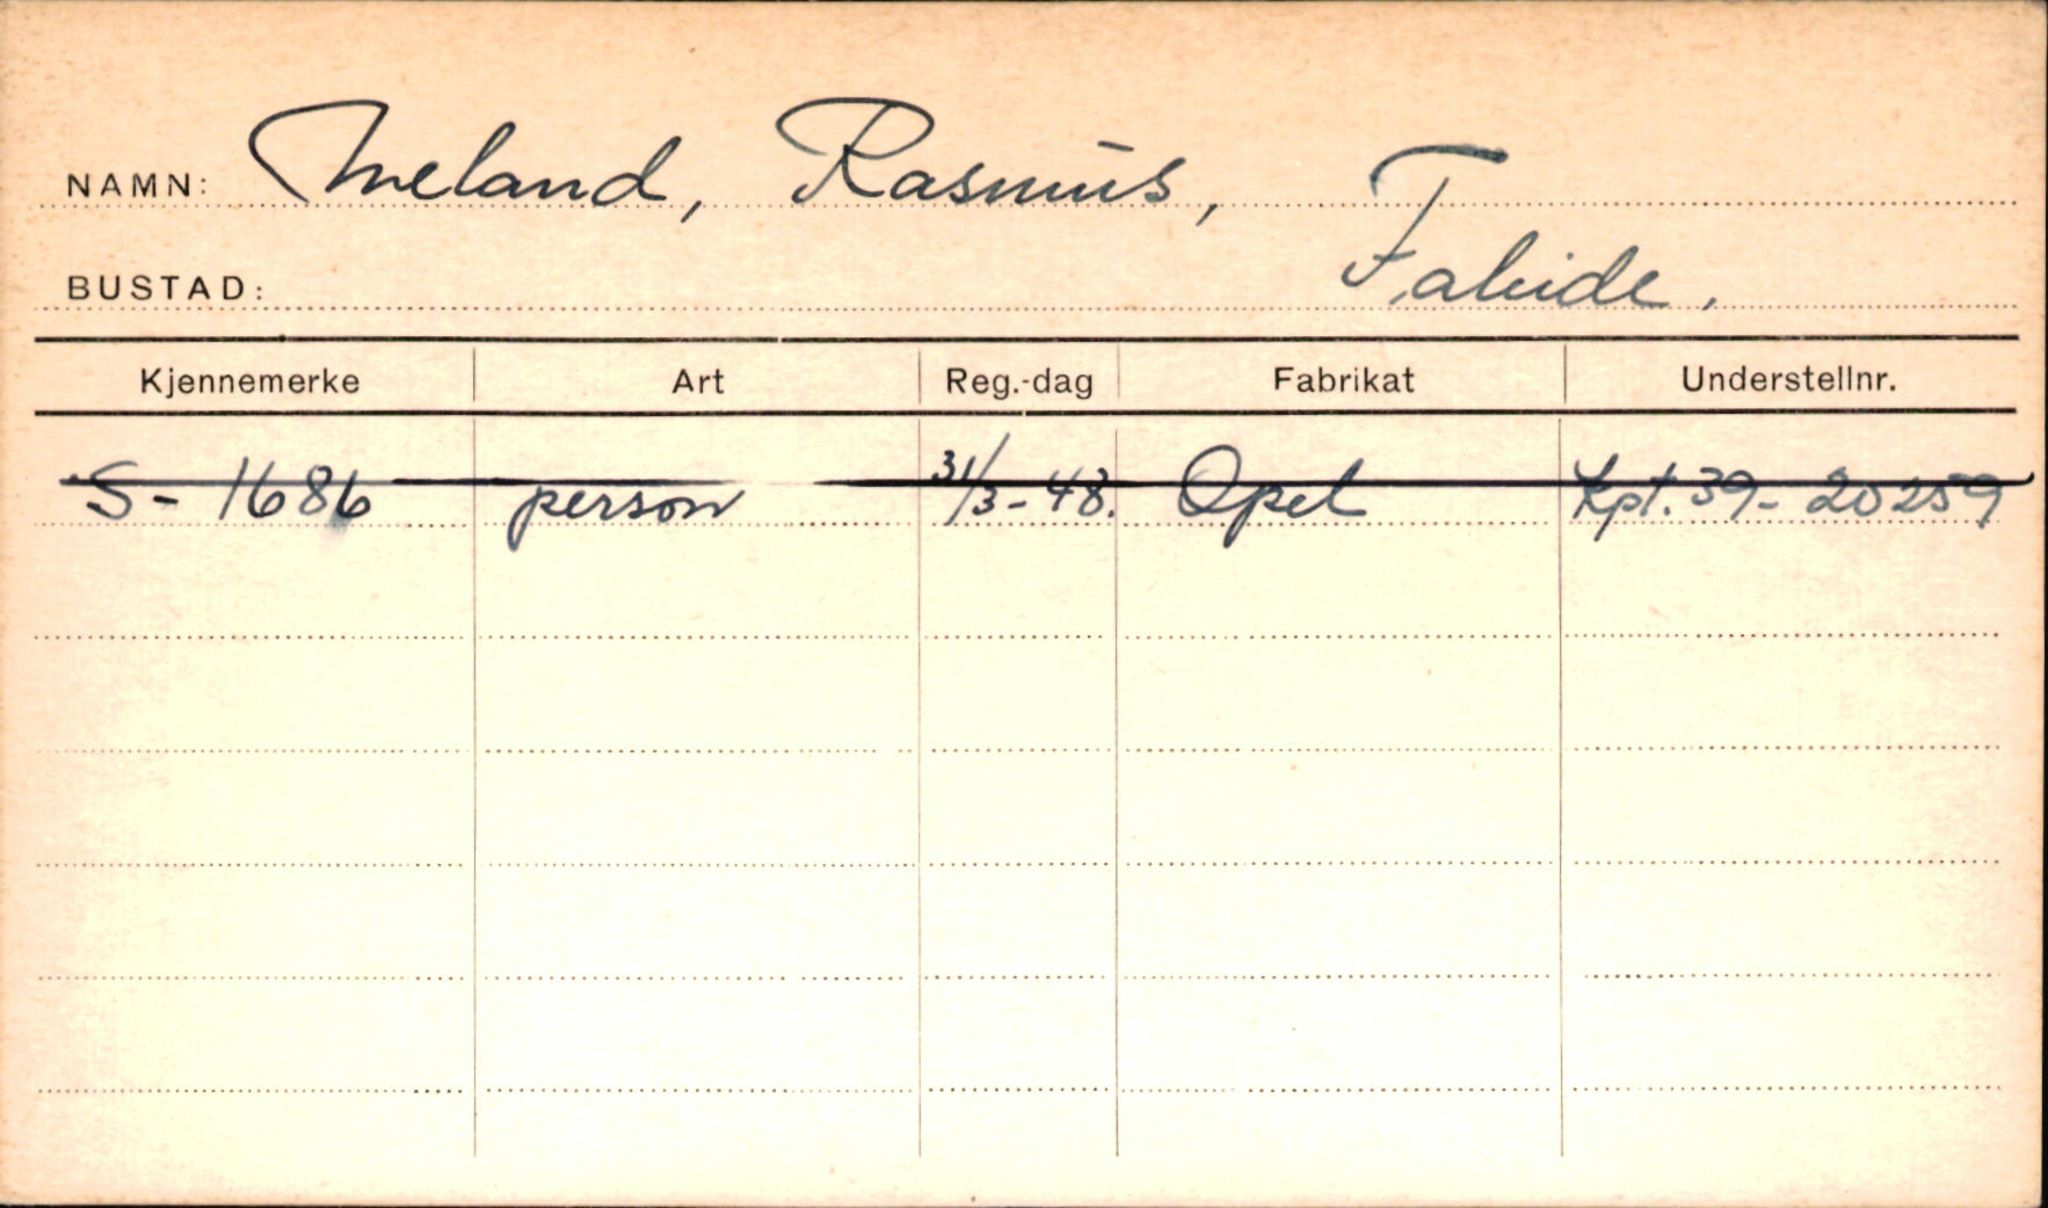 NAMN: Meland, Rasmus,
BUSTAD: Faleide.
Kjennemerke Art Reg.-dag Fabrikat Understellnr.
S-1686 person 31/3-48. Opel Kpt. 39-20259